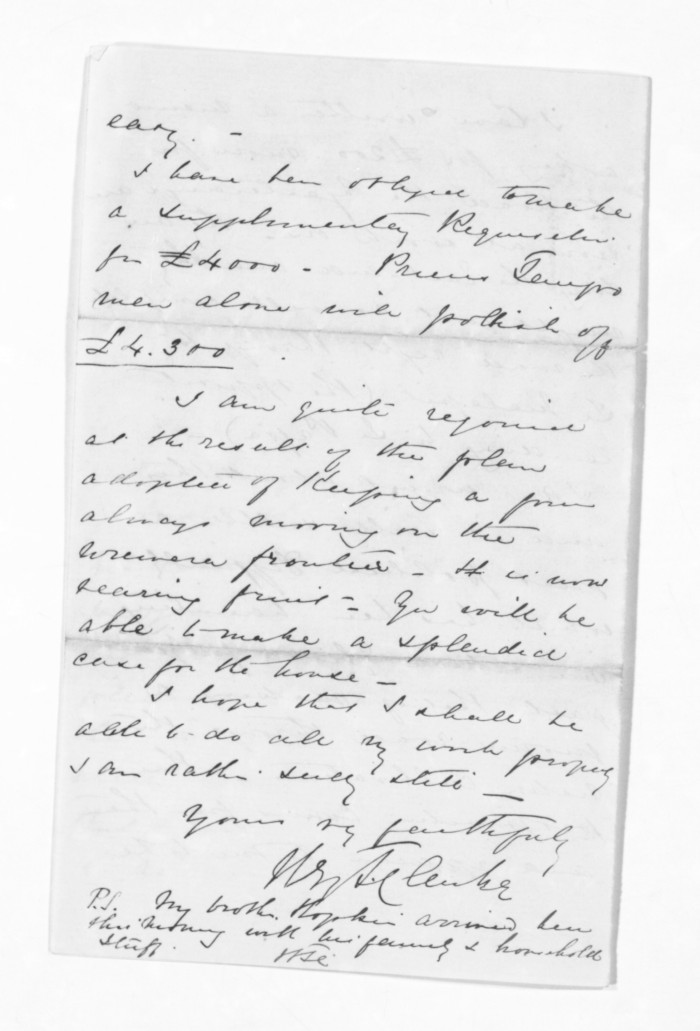 easy. -
I have been obliged to make
a supplementary Requisition
for £4000 - Tempo
men alone will polish off
£4.300
I am quite rejoiced
at the result of the plan
adopted of Keeping a force
always moving on the
frontier - It is now
bearing fruit - You will be
able to make a splendid
case for the house -
I hope that I shall be
able to do all my work properly
I am rather seedy still -
Yours vy faithfully
Hy T Clarke
P.S. My brother Hopkin arrived here
this morning with his family & household
stuff. HTC